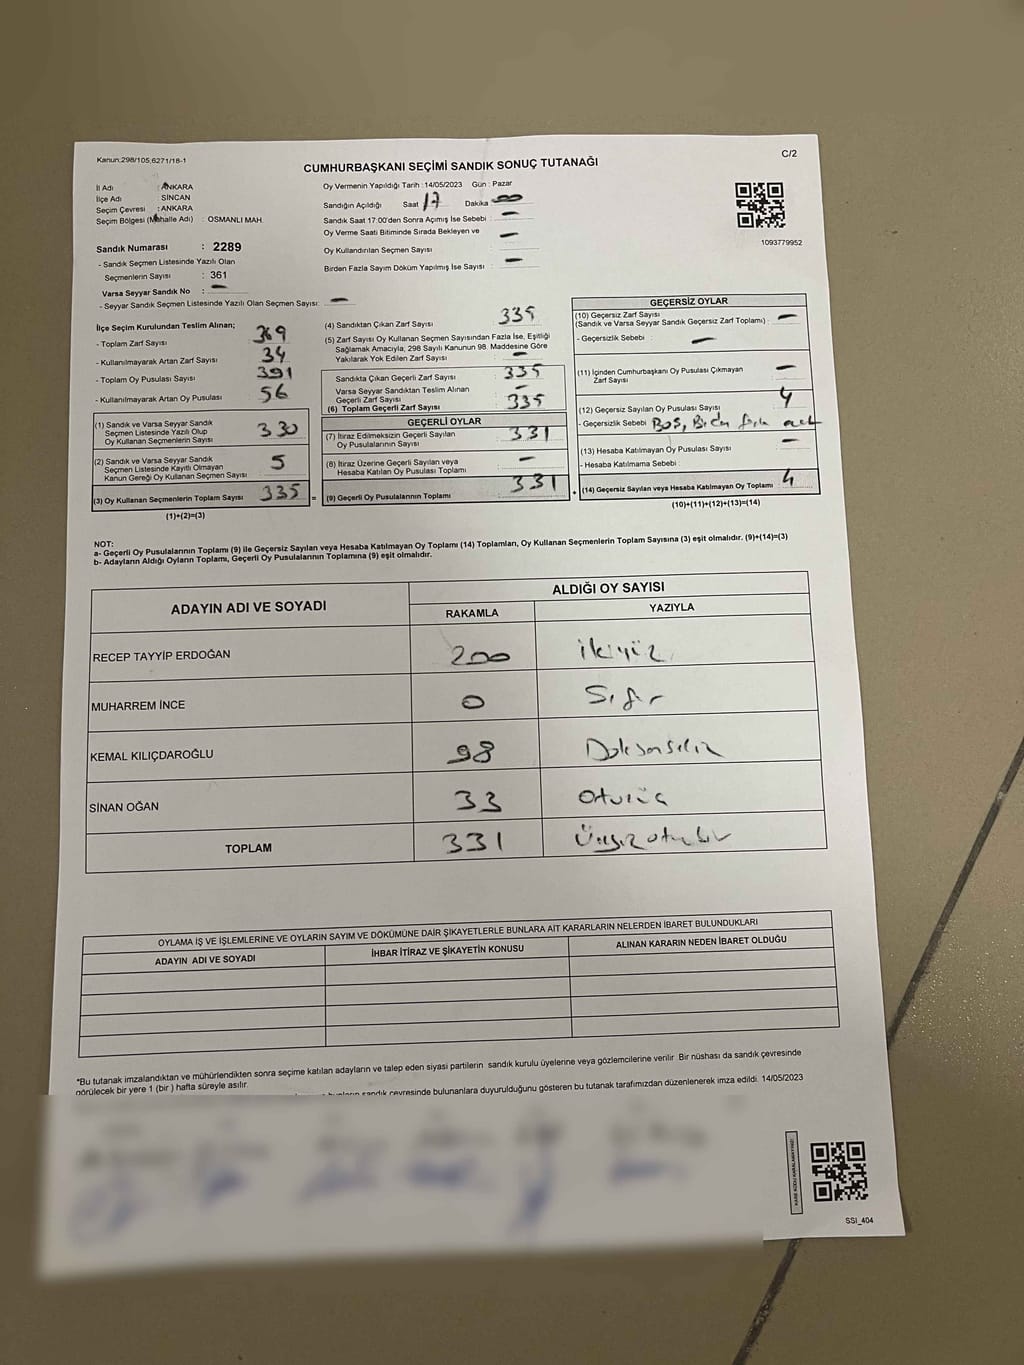 Kanun:298/105;6271/18-1
C/2
CUMHURBAŞKANI SEÇİMİ SANDIK SONUÇ TUTANAĞI
İl Adı : ANKARA
İlçe Adı : SİNCAN
Seçim Çevresi : ANKARA
Seçim Bölgesi (Mahalle Adı) : OSMANLI MAH.
Sandık Numarası : 2289
- Sandık Seçmen Listesinde Yazılı Olan
Seçmenlerin Sayısı : 361
Varsa Seyyar Sandık No : —
- Seyyar Sandık Seçmen Listesinde Yazılı Olan Seçmen Sayısı: —
Oy Vermenin Yapıldığı Tarih : 14/05/2023 Gün : Pazar
Sandığın Açıldığı Saat 17 Dakika 00
Sandık Saat 17:00'den Sonra Açımış İse Sebebi : —
Oy Verme Saati Bitiminde Sırada Bekleyen ve —
Oy Kullandırılan Seçmen Sayısı
Birden Fazla Sayım Döküm Yapılmış İse Sayısı : —
1093779952
İlçe Seçim Kurulundan Teslim Alınan;
- Toplam Zarf Sayısı 369
- Kullanılmayarak Artan Zarf Sayısı 34
- Toplam Oy Pusulası Sayısı 391
- Kullanılmayarak Artan Oy Pusulası 56
(1) Sandık ve Varsa Seyyar Sandık
Seçmen Listesinde Yazılı Olup
Oy Kullanan Seçmenlerin Sayısı 330
(2) Sandık ve Varsa Seyyar Sandık
Seçmen Listesinde Kayıtlı Olmayan
Kanun Gereği Oy Kullanan Seçmen Sayısı 5
(3) Oy Kullanan Seçmenlerin Toplam Sayısı 335 =
(1)+(2)=(3)
(4) Sandıktan Çıkan Zarf Sayısı 335
(5) Zarf Sayısı Oy Kullanan Seçmen Sayısından Fazla İse, Eşitliği
Sağlamak Amacıyla, 298 Sayılı Kanunun 98. Maddesine Göre
Yakılarak Yok Edilen Zarf Sayısı —
Sandıkta Çıkan Geçerli Zarf Sayısı 335
Varsa Seyyar Sandıktan Teslim Alınan
Geçerli Zarf Sayısı —
(6) Toplam Geçerli Zarf Sayısı 335
GEÇERLİ OYLAR
(7) İtiraz Edilmeksizin Geçerli Sayılan
Oy Pusulalarının Sayısı 331
(8) İtiraz Üzerine Geçerli Sayılan veya
Hesaba Katılan Oy Pusulası Toplamı —
(9) Geçerli Oy Pusulalarının Toplamı 331 +
GEÇERSİZ OYLAR
(10) Geçersiz Zarf Sayısı
(Sandık ve Varsa Seyyar Sandık Geçersiz Zarf Toplamı) : —
- Geçersizlik Sebebi : —
(11) İçinden Cumhurbaşkanı Oy Pusulası Çıkmayan
Zarf Sayısı —
(12) Geçersiz Sayılan Oy Pusulası Sayısı 4
- Geçersizlik Sebebi Boş, Birden fazla
(13) Hesaba Katılmayan Oy Pusulası Sayısı —
- Hesaba Katılmama Sebebi :
(14) Geçersiz Sayılan veya Hesaba Katılmayan Oy Toplamı : 4
(10)+(11)+(12)+(13)=(14)
NOT:
a- Geçerli Oy Pusulalarının Toplamı (9) ile Geçersiz Sayılan veya Hesaba Katılmayan Oy Toplamı (14) Toplamları, Oy Kullanan Seçmenlerin Toplam Sayısına (3) eşit olmalıdır. (9)+(14)=(3)
b- Adayların Aldığı Oyların Toplamı, Geçerli Oy Pusulalarının Toplamına (9) eşit olmalıdır.
ADAYIN ADI VE SOYADI ALDIĞI OY SAYISI
RAKAMLA YAZIYLA
RECEP TAYYİP ERDOĞAN 200 ikiyüz
MUHARREM İNCE 0 Sıfır
KEMAL KILIÇDAROĞLU 98 Doksansekiz
SİNAN OĞAN 33 Otuzüç
TOPLAM 331 Üçyüzotuzbir
OYLAMA İŞ VE İŞLEMLERİNE VE OYLARIN SAYIM VE DÖKÜMÜNE DAİR ŞİKAYETLERLE BUNLARA AİT KARARLARIN NELERDEN İBARET BULUNDUKLARI
ADAYIN ADI VE SOYADI İHBAR İTİRAZ VE ŞİKAYETİN KONUSU ALINAN KARARIN NEDEN İBARET OLDUĞU
*Bu tutanak imzalandıktan ve mühürlendikten sonra seçime katılan adayların ve talep eden siyasi partilerin sandık kurulu üyelerine veya gözlemcilerine verilir. Bir nüshası da sandık çevresinde
görülecek bir yere 1 (bir) hafta süreyle asılır.
sandık çevresinde bulunanlara duyurulduğunu gösteren bu tutanak tarafımızdan düzenlenerek imza edildi. 14/05/2023
KARE KODU KARALAMAYINIZ!
SSI_404